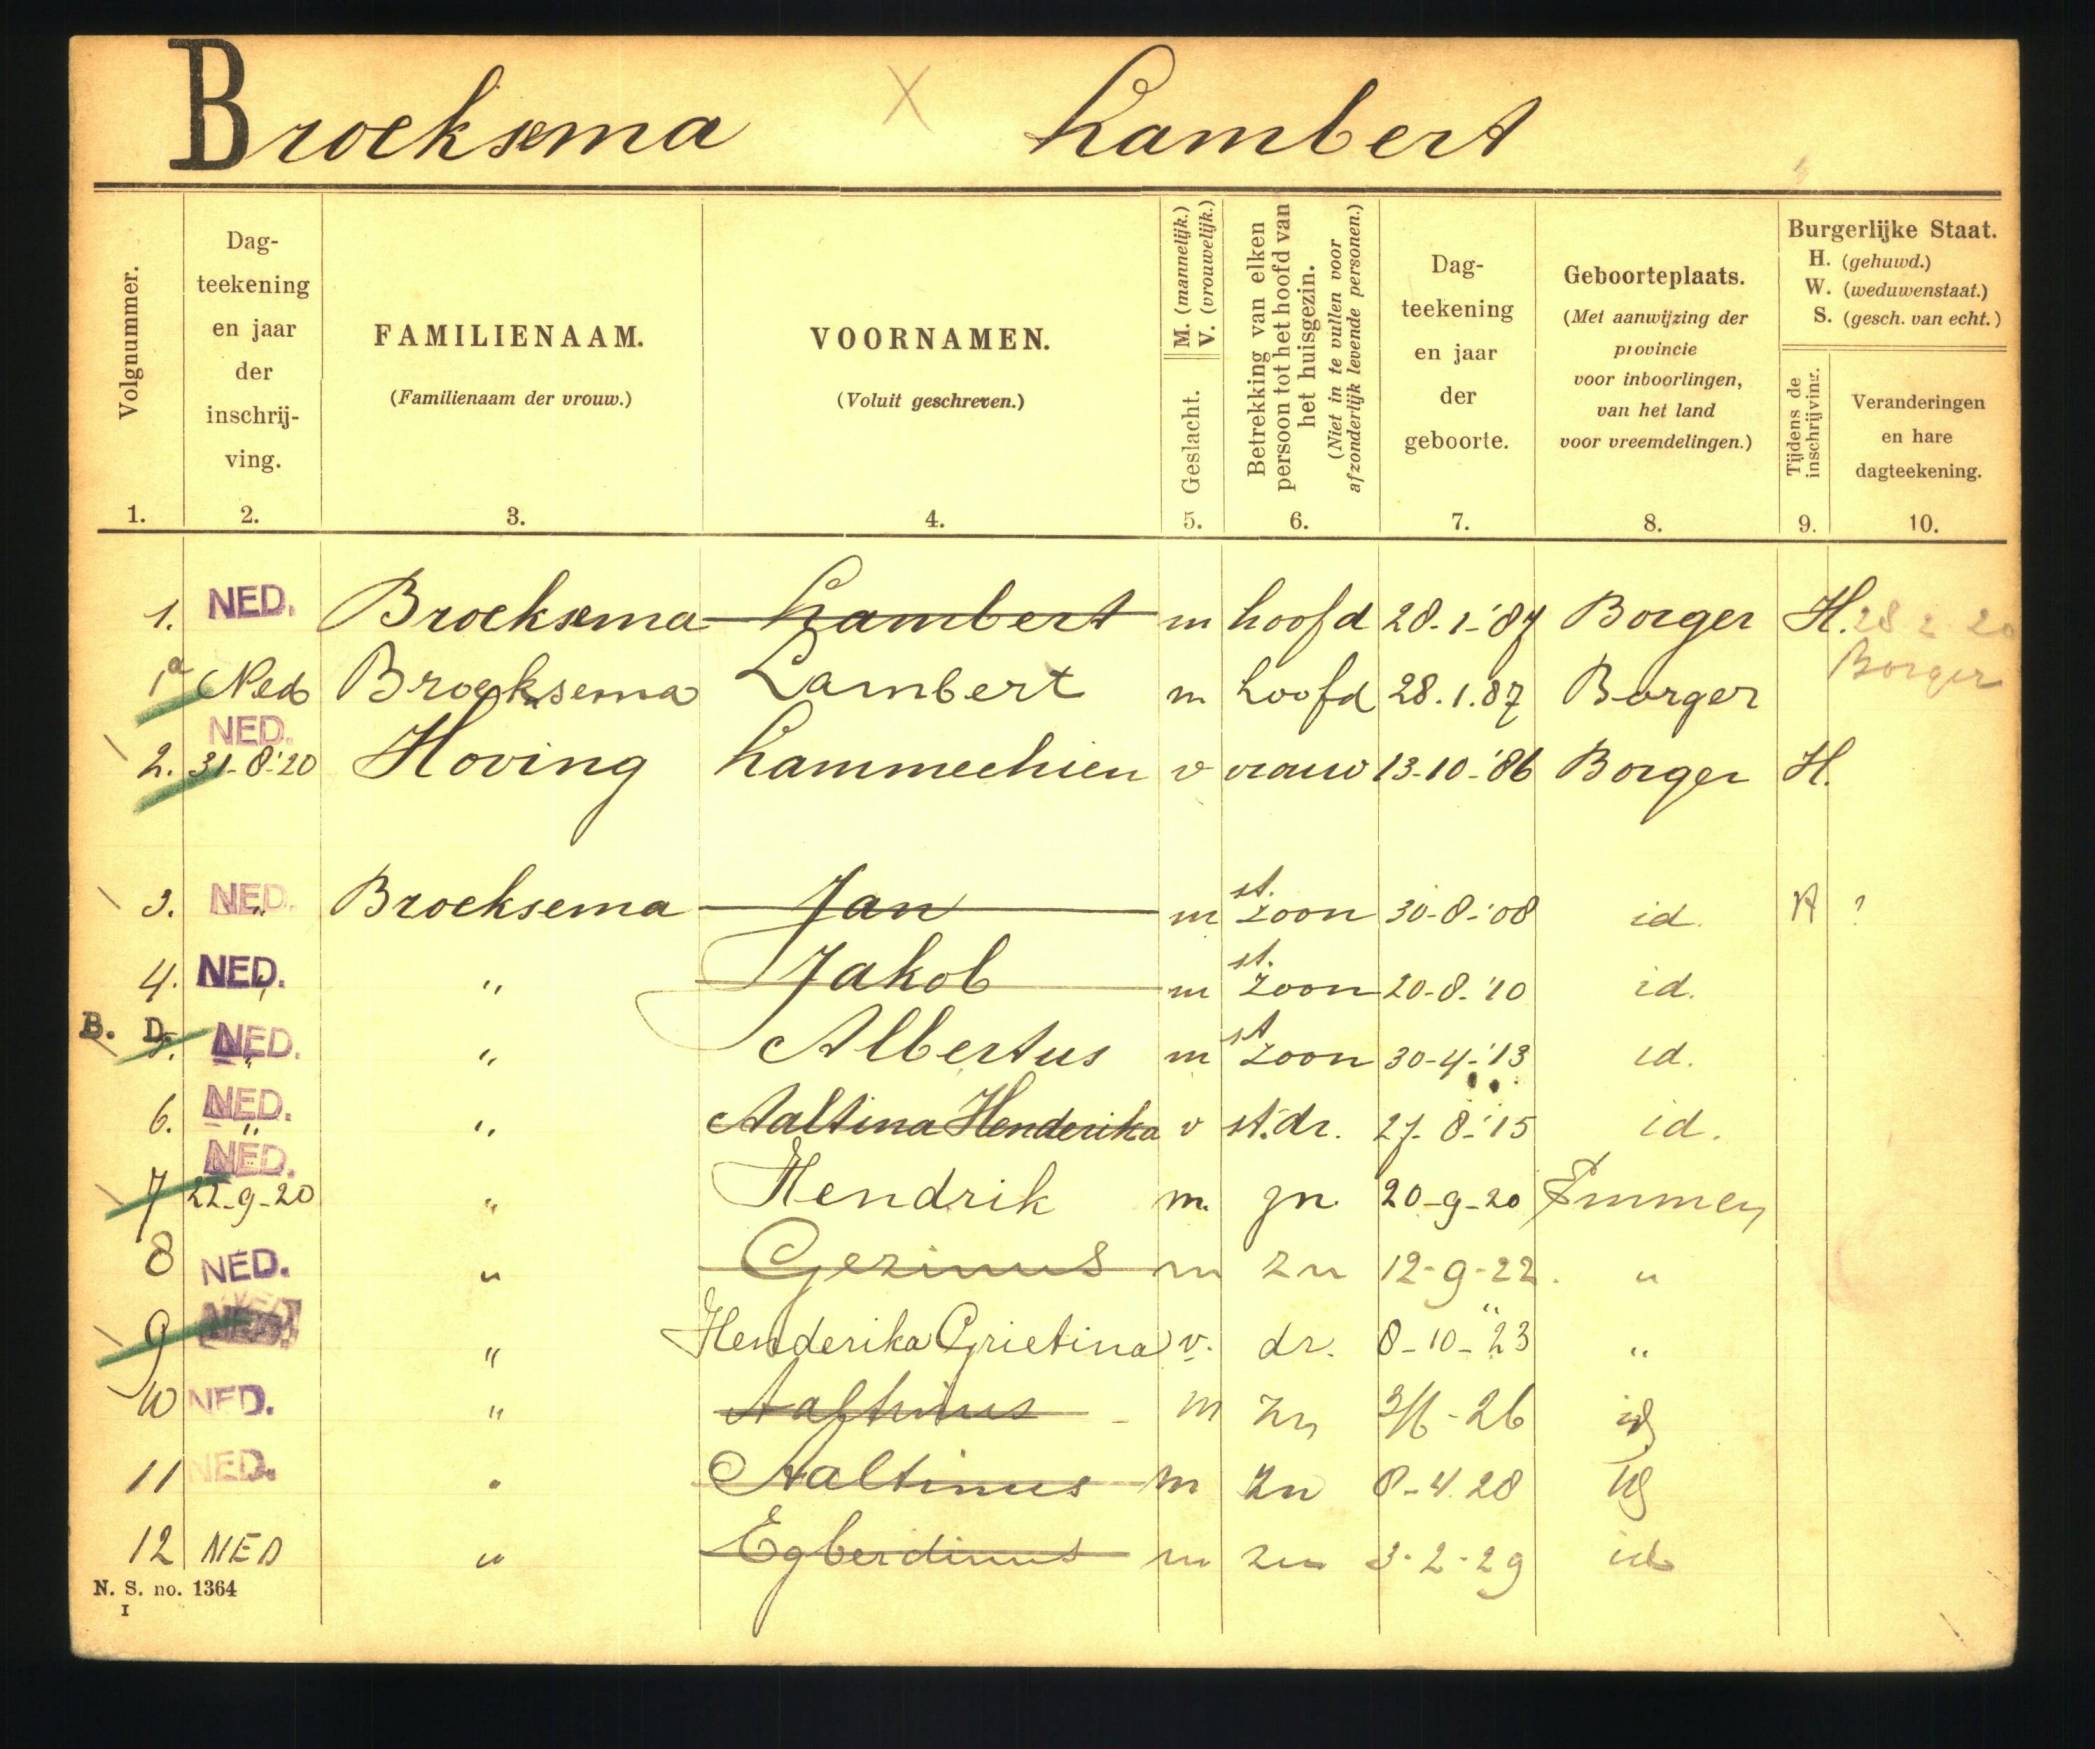 Broeksema × Lambert
Volgnummer.
Dag-
teekening
en jaar
der
inschrij-
ving.
FAMILIENAAM.
(Familienaam der vrouw.)
VOORNAMEN.
(Voluit geschreven.)
Geslacht.
M. (mannelijk.)
V. (vrouwelijk.)
Betrekking van elken
persoon tot het hoofd van
het huisgezin.
(Niet in te vullen voor
afzonderlijk levende personen.)
Dag-
teekening
en jaar
der
geboorte.
Geboorteplaats.
(Met aanwijzing der
provincie
voor inboorlingen,
van het land
voor vreemdelingen.)
Burgerlijke Staat.
H. (gehuwd.)
W. (weduwenstaat.)
S. (gesch. van echt.)
Tijdens de
inschrijving.
Veranderingen
en hare
dagteekening.
1. 2. 3. 4. 5. 6. 7. 8. 9. 10.
1. NED. Broeksema Lambert m hoofd 28-1-'87 Borger H. 28 2 20
Borger
1a Ned Broeksema Lambert m hoofd 28.1.87 Borger
NED.
2. 31-8-'20 Hoving Lammechien v vrouw 13-10-'86 Borger H.
3. NED. " Broeksema Jan m st. zoon 30-8-'08 id. H ?
4. NED. " " Jakob m st. zoon 20-8-'10 id.
B. D.
5. NED. " " Albertus m st zoon 30-4-'13 id.
6. NED. " " Aaltina Henderika v st. dr. 27-8-'15 id.
NED.
7 22-9-20 " Hendrik m. zn. 20-9-20 Emmen
8 NED. " Gezinus m zn 12-9-22. "
9 NED. " Henderika Grietina v. dr. 8-10-23 "
10 NED. " Aaltinus m zn 3/6-26 id
11 NED. " Aaltinus m zn 8-4.28 id
12 NED " Egberdinus m zn 3-2-29 id
N. S. no. 1364
I